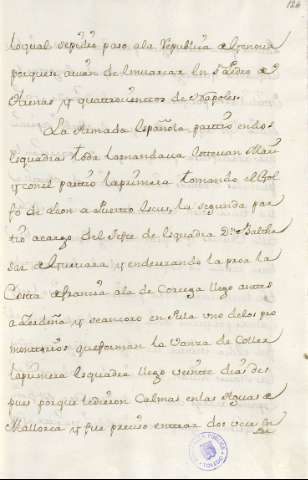 126
loqual sepidio paso ala Republica de Genova
porque se avian de embarcar En Sn Pedro de
Arenas y quattrocientos de Napoles.
La Armada Española partio en dos
Esquadras toda la mandava el
y con el partio la primera tomando el Gol
fo de Leon a Puerto la segunda par
tio acargo del Jefe de Esquadra Dn Baltha
sar de Guevara y enderezando la proa la
Costa de francia ala de Corzega llego antes
a Zerdeña y se ancoro en Pula uno delos pro
montorios que forman la Vanza de Coller
la primera Esquadra llego veinte dias des
pues porque le dieron Calmas en las Aguas de
Mallorca y fue preciso entrar dos veces En